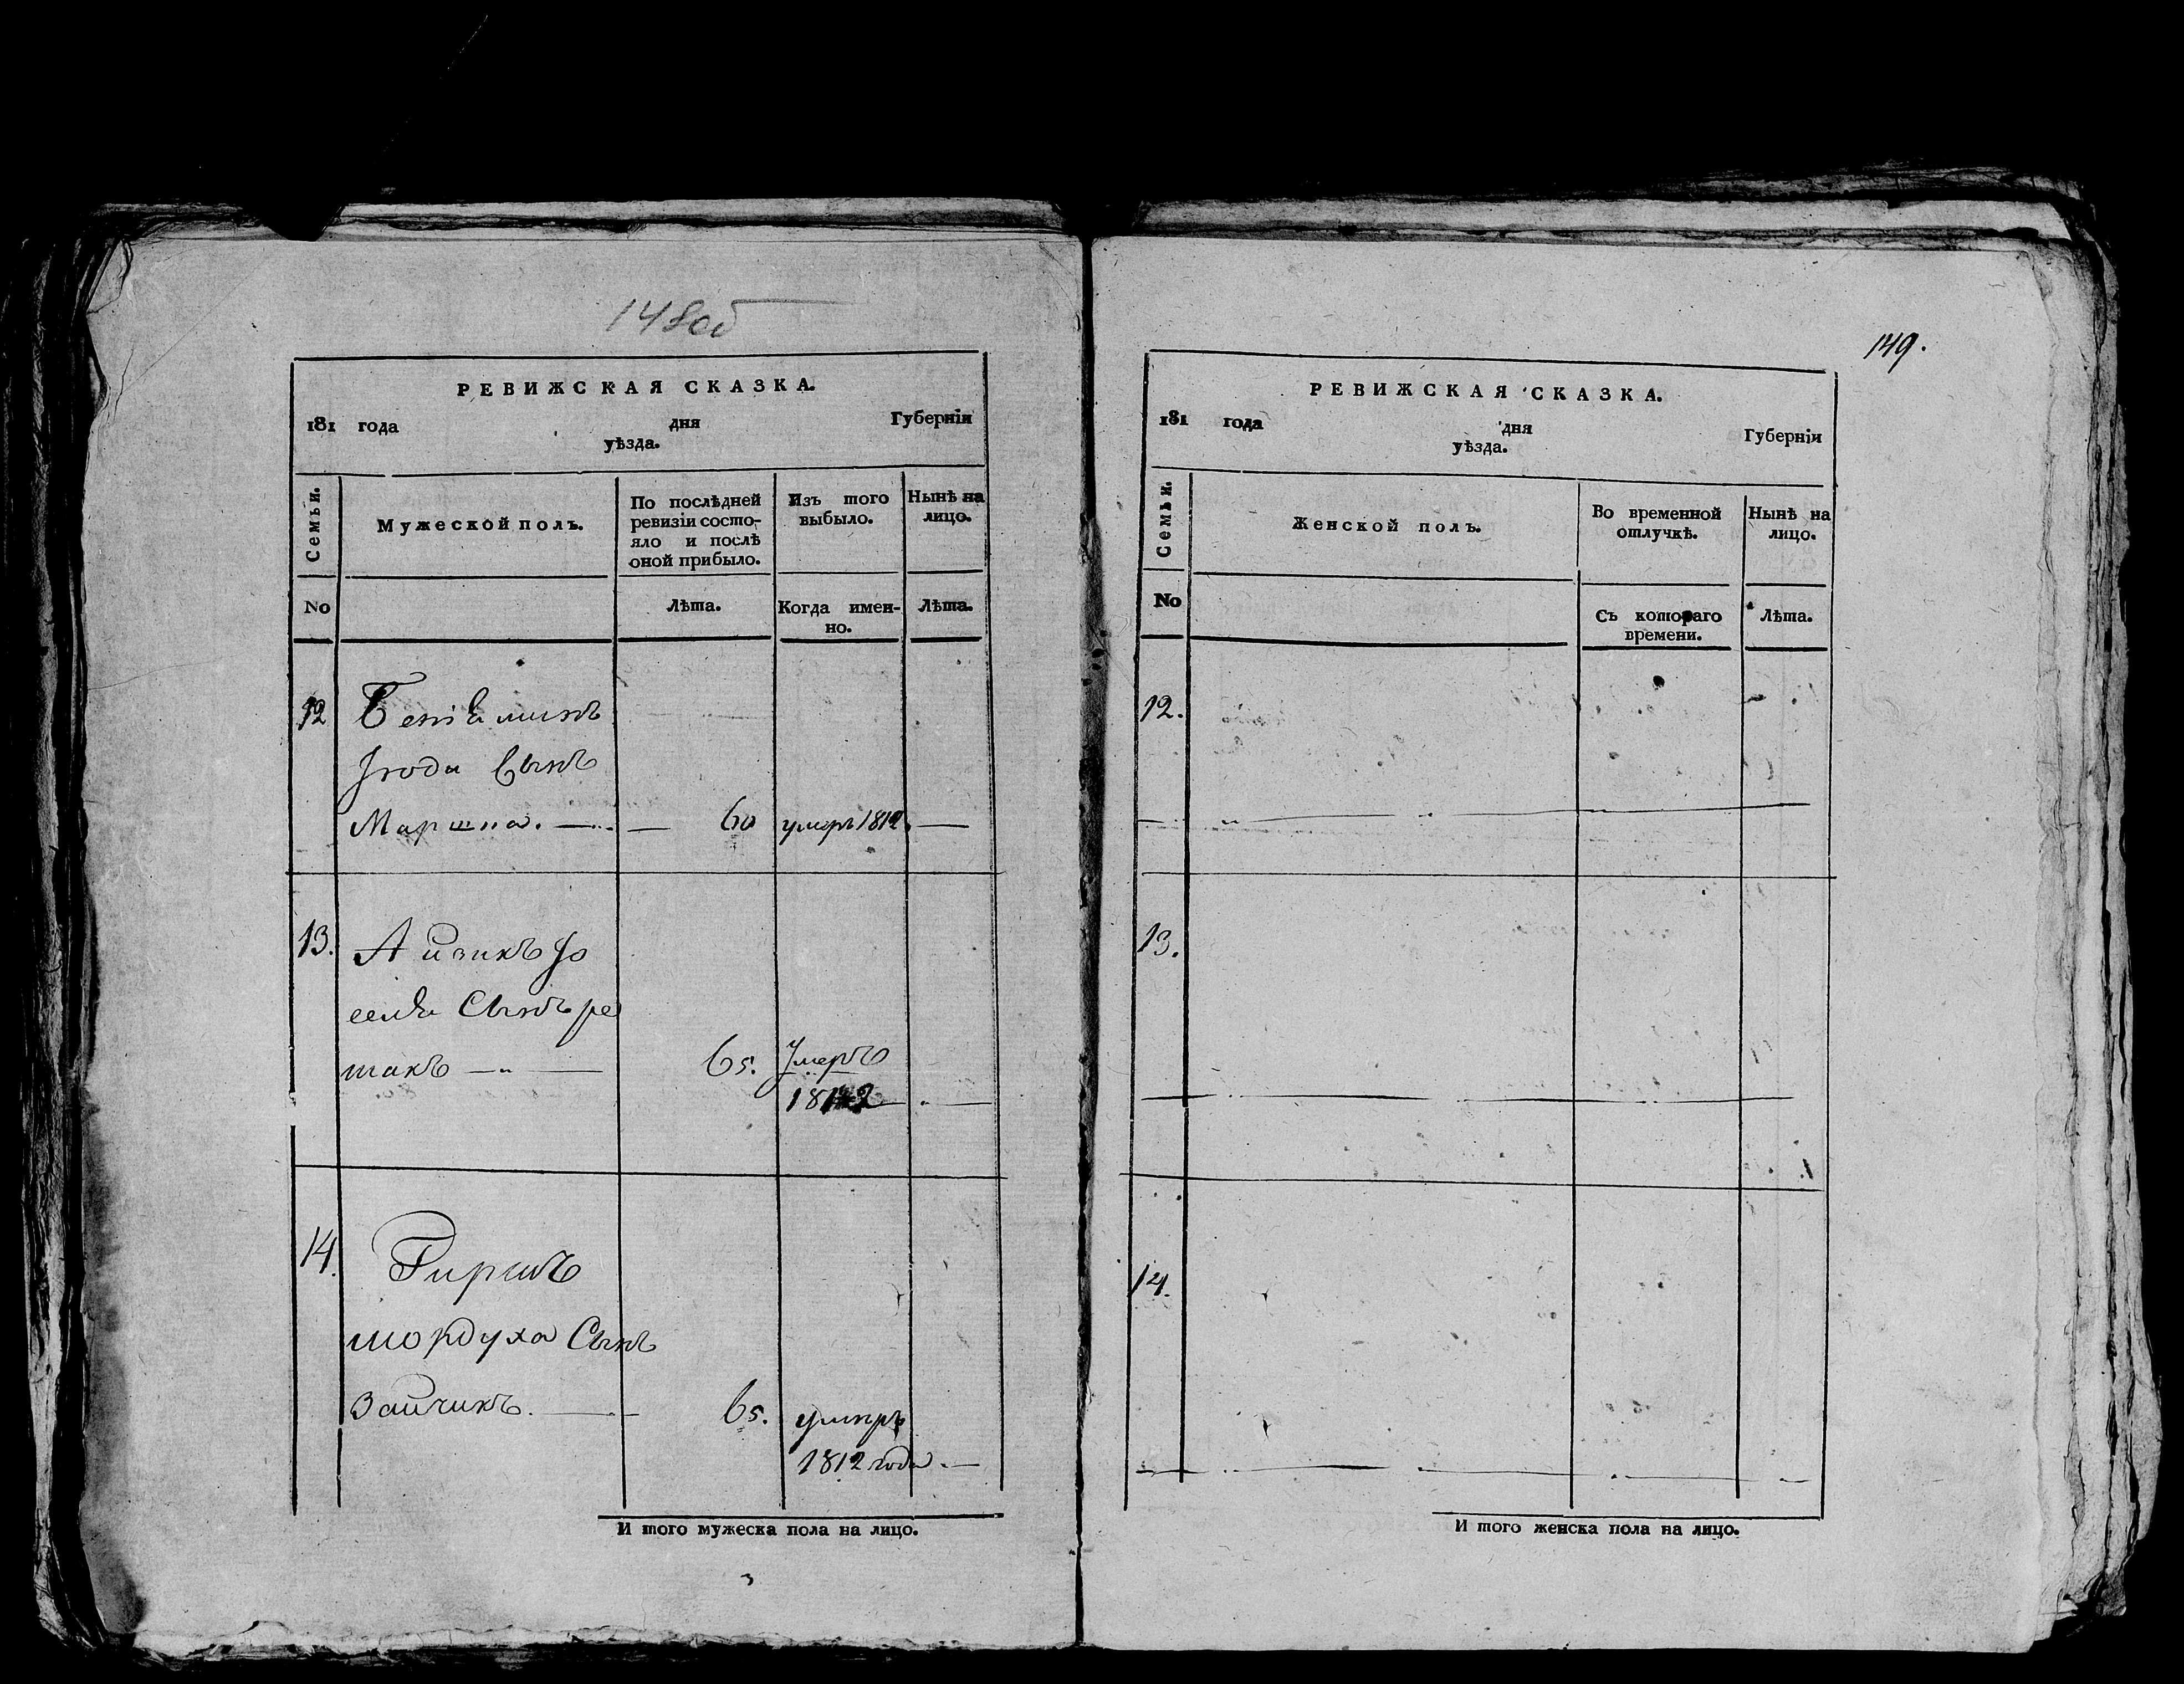 148об
РЕВИЖСКАЯ СКАЗКА.
181 года дня Губерніи
уѣзда.
Семьи.
Мужеской полъ.
По послѣдней
ревизіи состо-
яло и послѣ
оной прибыло.
Изъ того
выбыло.
Нынѣ на
лицо.
No
Лѣта.
Когда имен-
но.
Лѣта.
12 Бениаминъ
Іюда Сынъ
60 умеръ 1812
13. Айзикъ Іо
селя Сынъ ре
такъ 65. Умеръ
1812
14. Гиршъ
мордуха Сынъ
Зайчикъ. 65. умеръ
1812 года.
И того мужеска пола на лицо.
149.
РЕВИЖСКАЯ СКАЗКА.
181 года дня Губерніи
уѣзда.
Семьи.
Женской полъ.
Во временной
отлучкѣ.
Нынѣ на
лицо.
No
Съ котораго
времени.
Лѣта.
12.
13.
14.
И того женска пола на лицо.